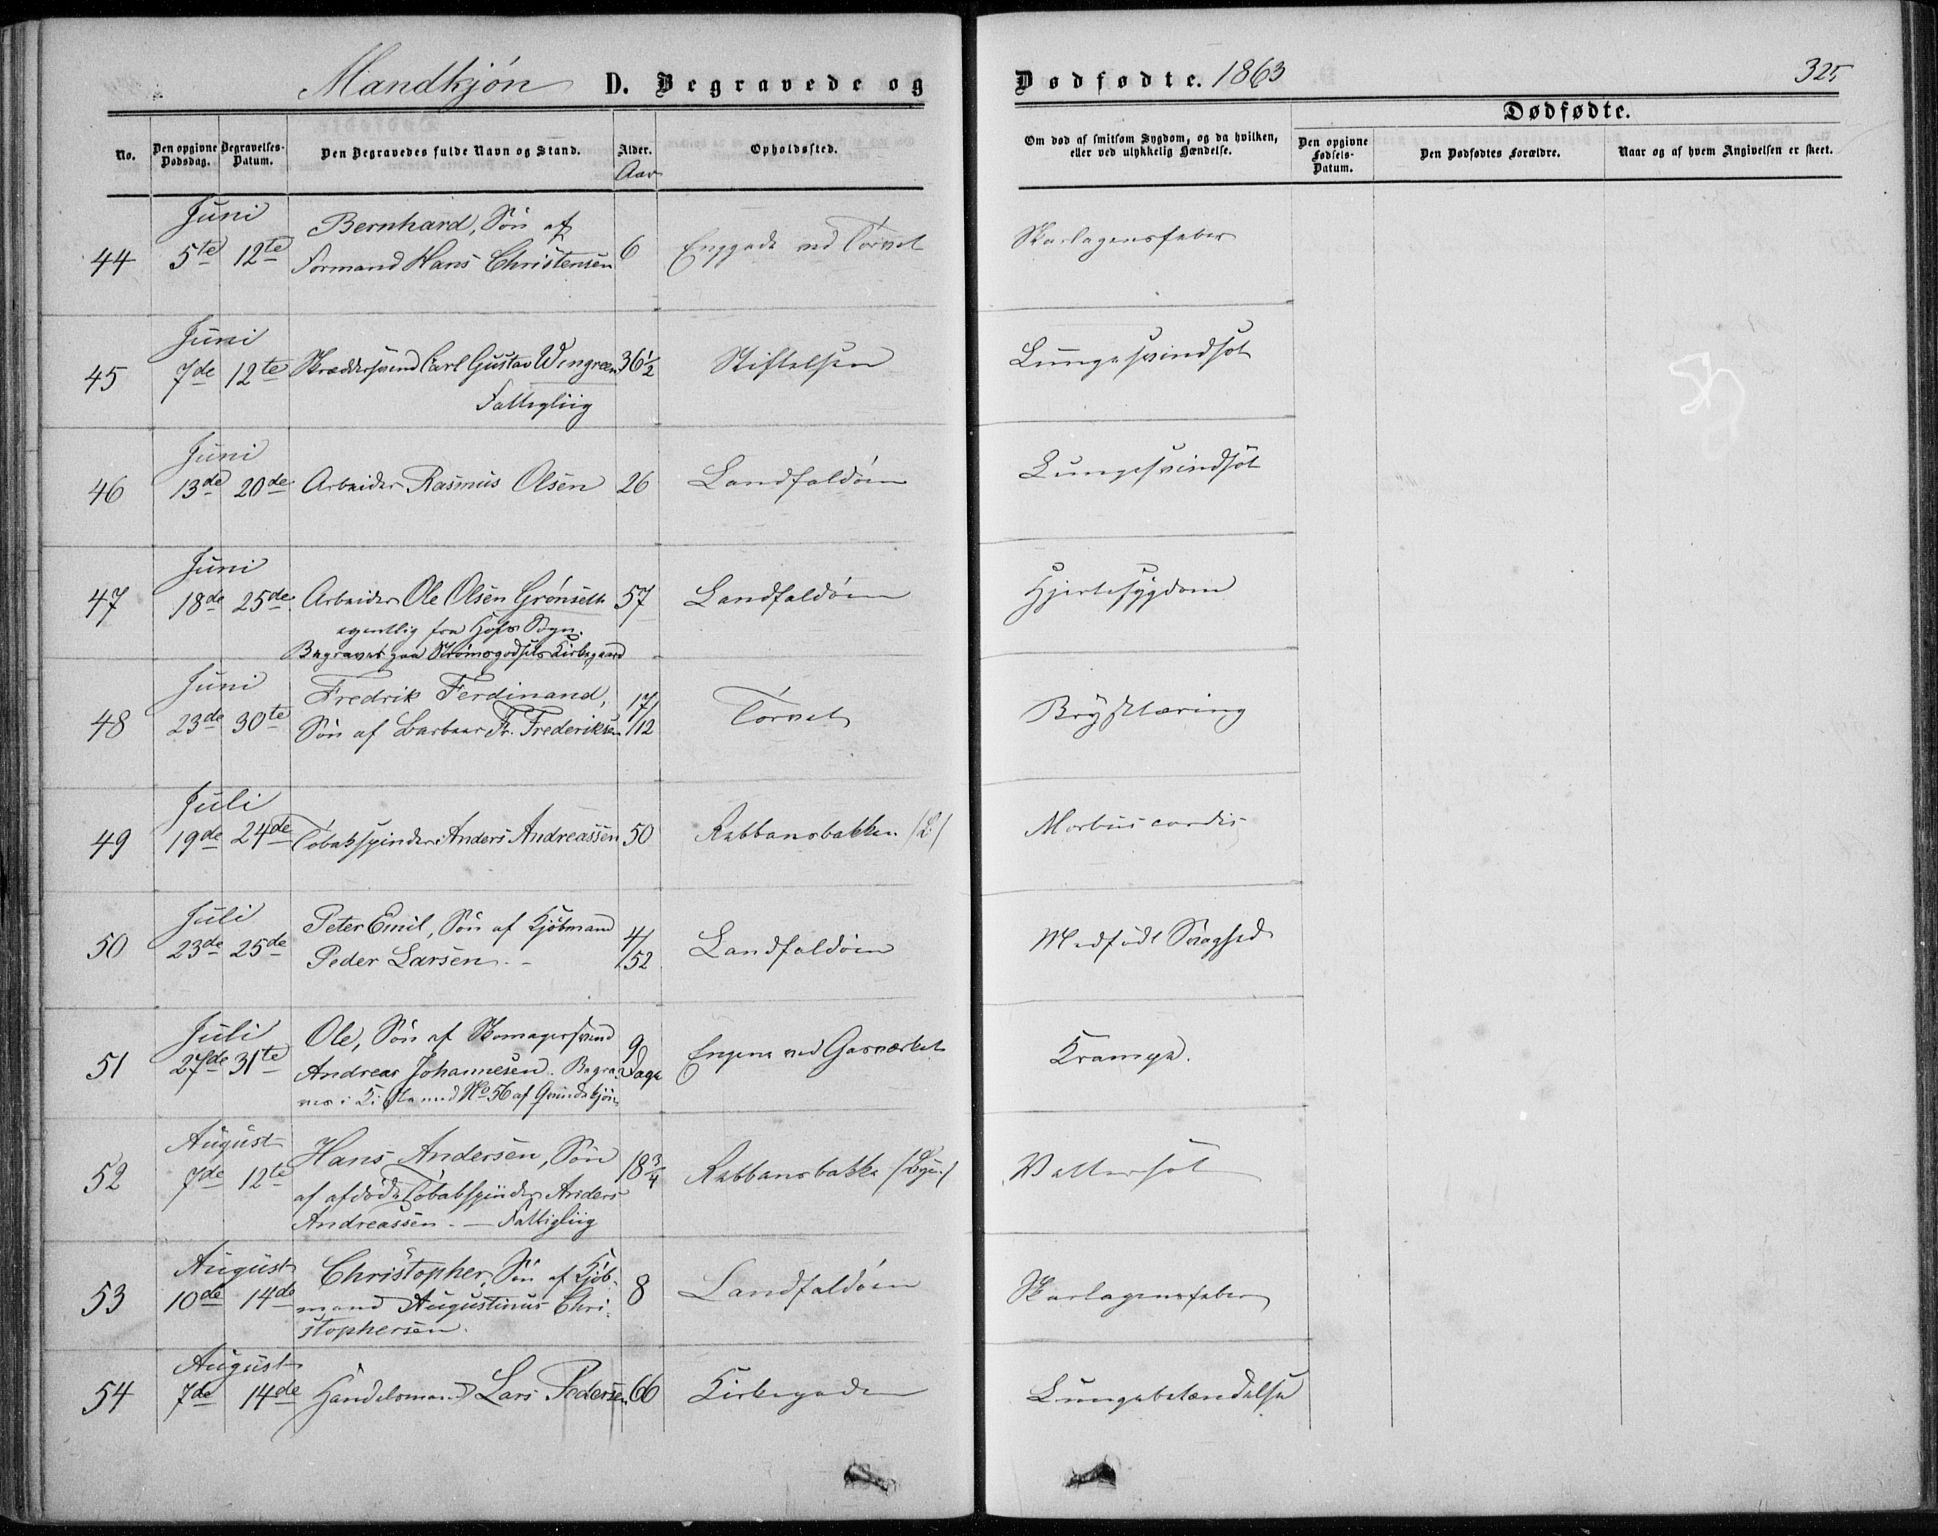 Mandkjøn D. Begravede og Dødfødte. 1863 325
Dødfødte.
No. Den opgivne Dødsdag. Begravelses-Datum. Den Begravedes fulde Navn og Stand. Alder. Opholdssted. Om død af smitsom Sygdom, og da hvilken, eller ved ulykkelig Hændelse. Den opgivne Fødsels-Datum. Den Dødfødtes Forældre. Naar og af hvem Angivelsen er skeet.
Aar
Juni Bernhard, Søn af
44 5te 12te Formand Hans Christensen 6 Enggade ved Torvet Skarlagensfeber
Juni
45 7de 12te Skræddersvend Carl Gustav Wengreen 36 1/2 Stiftelsen Lungesvindsot
Fattigliig
Juni
46 13de 20de Arbeider Rasmus Olsen 26 Landfaldøen Lungesvindsot
Juni
47 18de 25de Arbeider Ole Olsen Grønseth 57 Landfaldøen Hjertesygdom
egentlig fra Hofs Sogn.
Begravet paa Strømsgodsets Kirkegaard
Juni Fredrik Ferdinand,
48 23de 30te Søn af Barbeer Fr. Frederiksen 17/12 Torvet Brysttæring
Juli
49 19de 24de Tobakspinder Anders Andreassen 50 Rabbansbakken (L.) Morbus cordis
Juli Peter Emil, Søn af Kjøbmand
50 23de 25de Peder Larsen. 4/52 Landfaldøen Medfødt Svaghed
Juli Ole, Søn af Skomagersvend
51 27de 31te Andreas Johannesen. Begra- 9 Dage Engene ved Gasværket Krampe.
ves i Kiste med No 56 af Qvindekjøn
August Hans Andersen, Søn
52 7de 12te af afdøde Tobakspinder Anders 18 3/4 Rabbansbakke Vattersot
Andreassen. — Fattigliig
August Christopher, Søn af Kjøb-
53 10de 14de mand Augustinus Chri- 8 Landfaldøen Skarlagensfeber
stophersen.
August
54 7de 14de Handelsmand Lars Pedersen 66 Kirkegaden Lungebetændelse